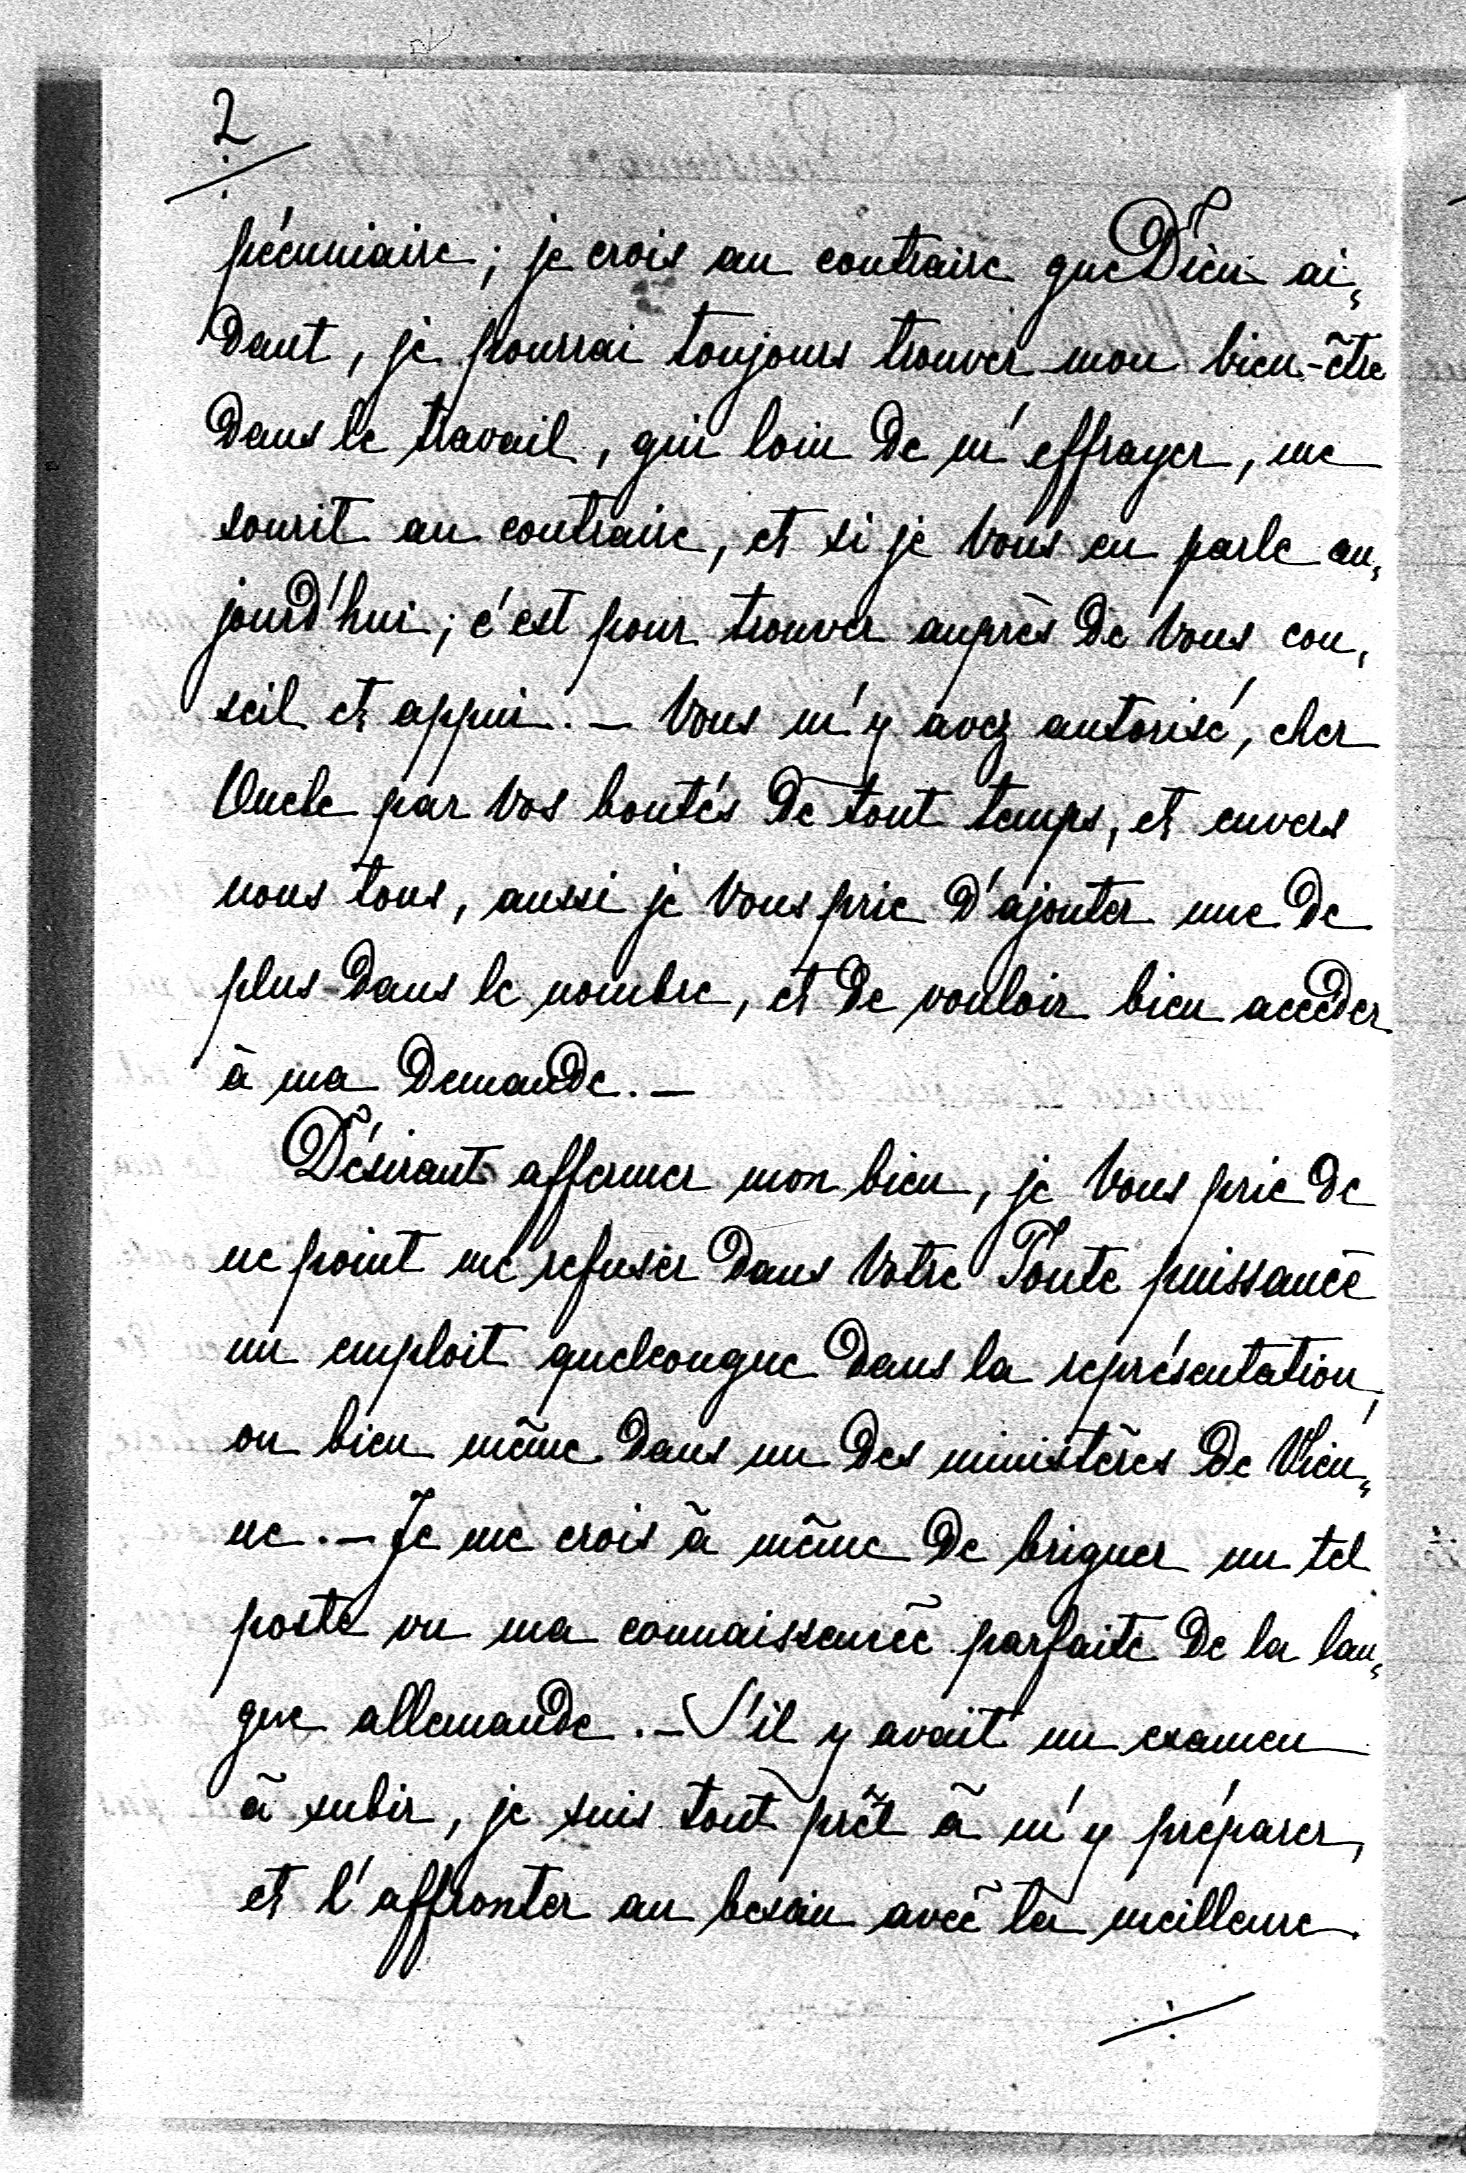 2
pécuniaire; je crois au contraire que Dieu ai„
dant, je pourrai toujours trouver mon bien-être
dans le travail, qui loin de m'effrayer, me
sourit au contraire, et si je Vous en parle au„
jourd'hui; c'est pour trouver auprès de Vous con„
seil et appui. — Vous m'y avez autorisé, cher
Oncle par Vos bontés de tout temps, et envers
nous tous, aussi je Vous prie d'ajouter une de
plus dans le nombre, et de vouloir bien accéder
à ma demande. —
Désirant affermer mon bien, je Vous prie de
ne point me refuser dans Votre Toute puissance
un emploit quelconque dans la représentation,
ou bien même dans un des ministères de Vien„
ne. — Je me crois à même de briguer un tel
poste vu ma connaissance parfaite de la lan„
gue allemande. — S'il y avait un examen
à subir, je suis tout prêt à m'y préparer,
et l'affronter au besoin avec la meilleure